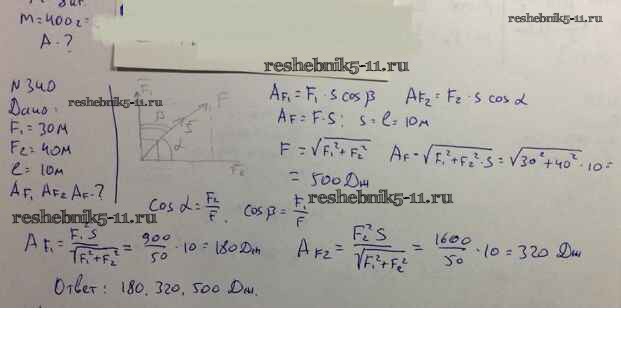 M=400г=
A-?
reshebnik5-11.ru
reshebnik5-11.ru
N340
Дано:
F₁=30м
F₂=40м
l=10м
AF₁ AF₂ AF-?
reshebnik5-11.ru
F₁
β
F
S
α
F₂
AF₁=F₁·S cosβ AF₂=F₂·S cosα
AF=F·S; S=l=10м
F=√F₁²+F₂² AF=√F₁²+F₂²·S=√30²+40²·10=
=500Дж
reshebnik5-11.ru
cosα=F₂/F, cosβ=F₁/F
reshebnik5-11.ru
AF₁=F₁²S/√F₁²+F₂²=900/50·10=180Дж AF2=F₂²S/√F₁²+F₂²=1600/50·10=320 Дж
Ответ: 180, 320, 500 Дж.